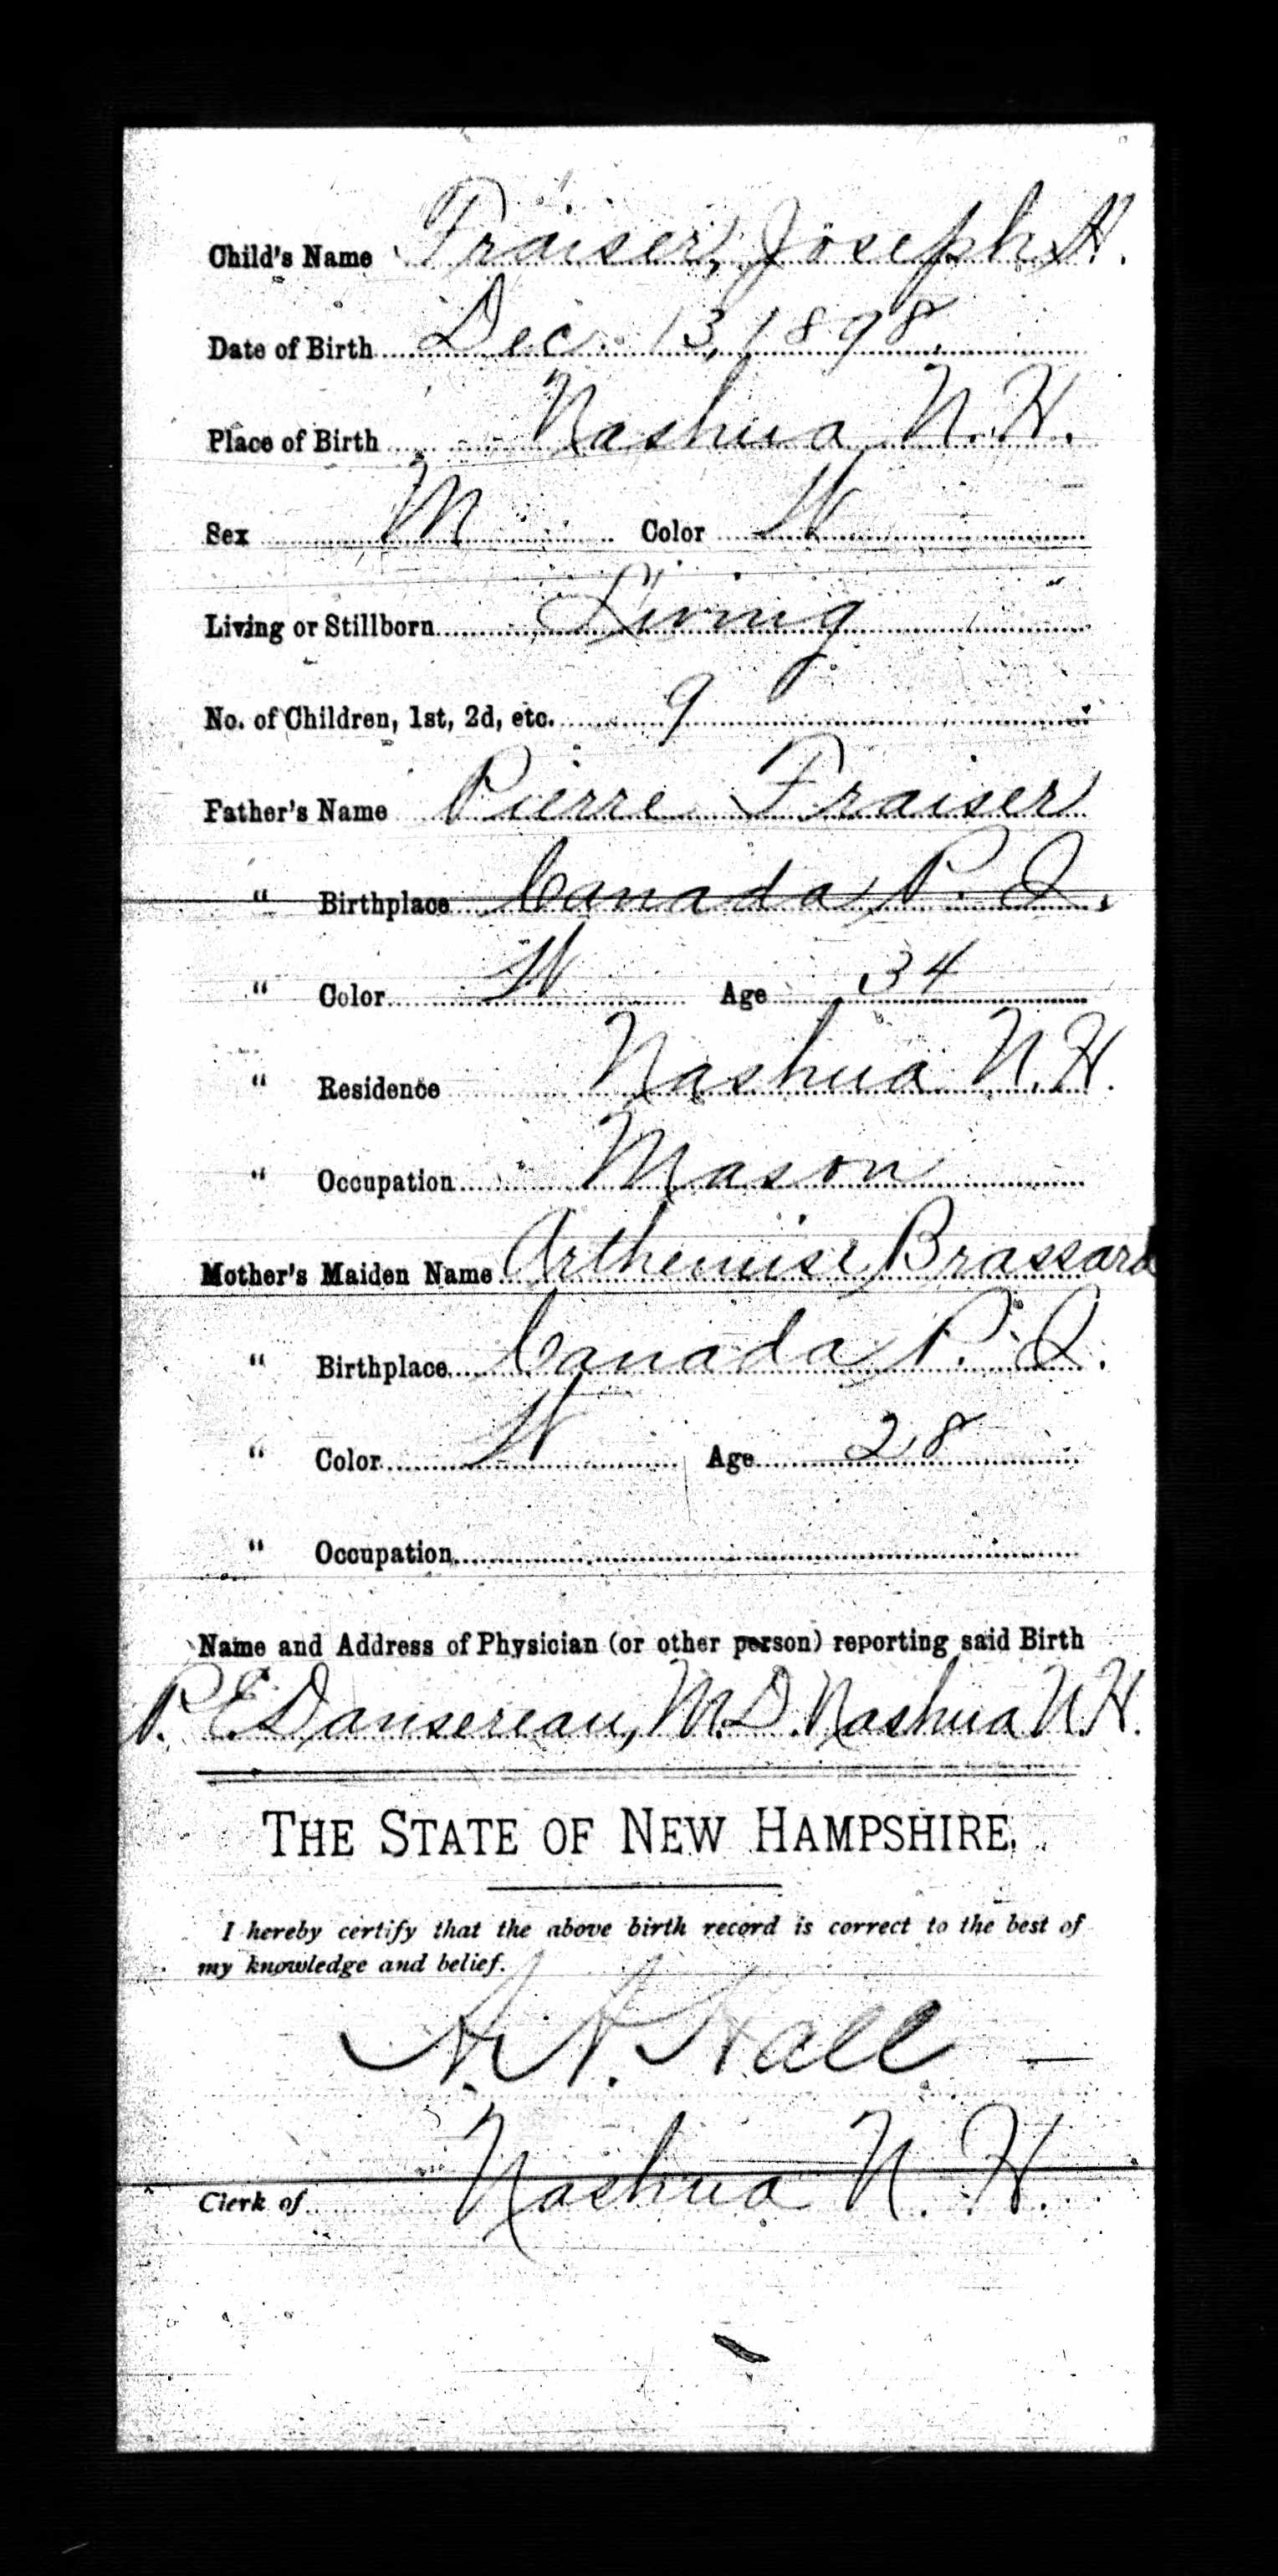 Child's Name Fraiser, Joseph H.
Date of Birth Dec. 13, 1898.
Place of Birth Nashua N. H.
Sex M Color W
Living or Stillborn Living
No. of Children, 1st, 2d, etc. 9
Father's Name Pierre Fraiser
" Birthplace Canada P. Q.
" Color W Age 34
" Residence Nashua N. H.
" Occupation Mason
Mother's Maiden Name Arthemise Brassard
" Birthplace Canada P. Q.
" Color W Age 28
" Occupation
Name and Address of Physician (or other person) reporting said Birth
P. E. Dansereau, M.D. Nashua N.H.
THE STATE OF NEW HAMPSHIRE.
I hereby certify that the above birth record is correct to the best of
my knowledge and belief.
Hall
Nashua N. H.
Clerk of